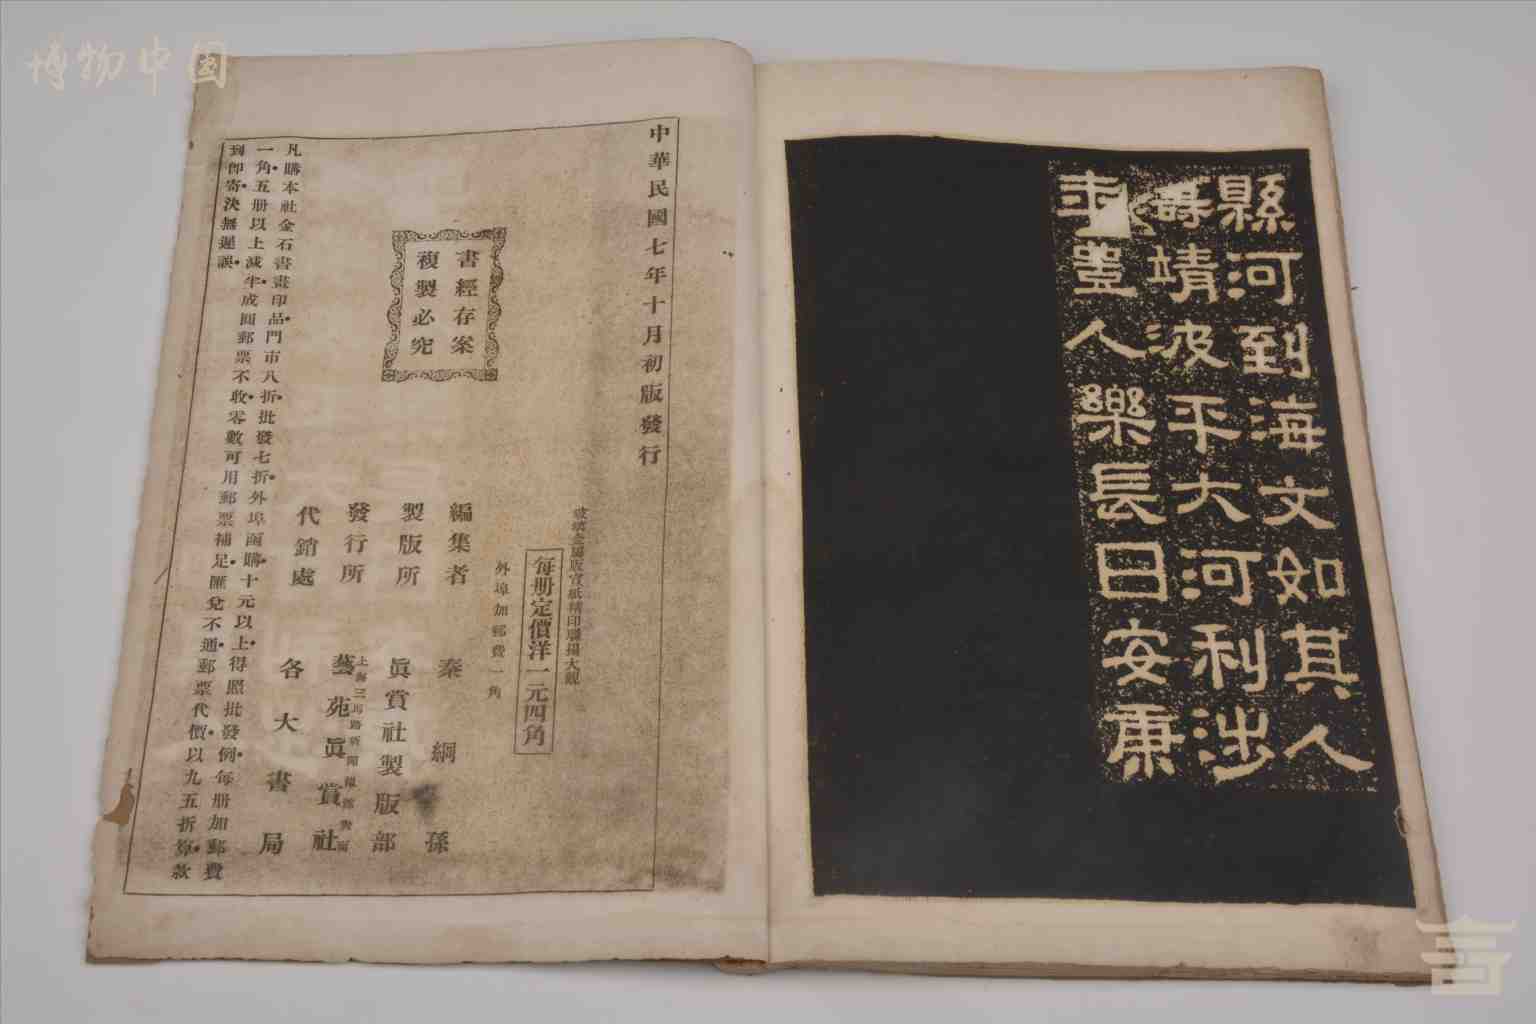 博物中国
縣河到海文如其人
靖波平大河利涉
豊人樂長日安康
中華民國七年十月初版發行
書經存案
複製必究
玻璃金屬版宣紙精印聯揚大觀
每册定價洋一元四角
外埠加郵費一角
編集者 秦綱孫
製版所 眞賞社製版部
發行所 上海三馬路新聞報館對面 藝苑眞賞社
代銷處 各大書局
凡購本社金石書畫印品門市八折批發七折外埠函購十元以上得照批發例每册加郵費
一角五册以上減半成圓郵票不收零數可用郵票補足匯兌不通郵票代價以九五折算款
到卽寄決無遲誤